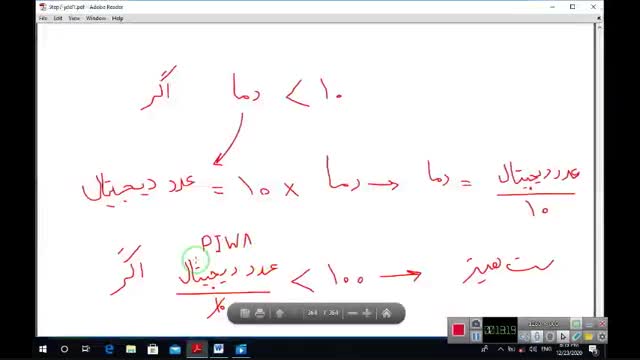 Step7 yaddi1.pdf - Adobe Reader
File Edit View Window Help
اگر دما < ۱۰
عدد دیجیتال = ۱۰ × دما → دما = عدد دیجیتال / ۱۰
PIW8
اگر عدد دیجیتال / ۱۰ < ۱۰۰ → ست میز
264 / 264
12/23/2020